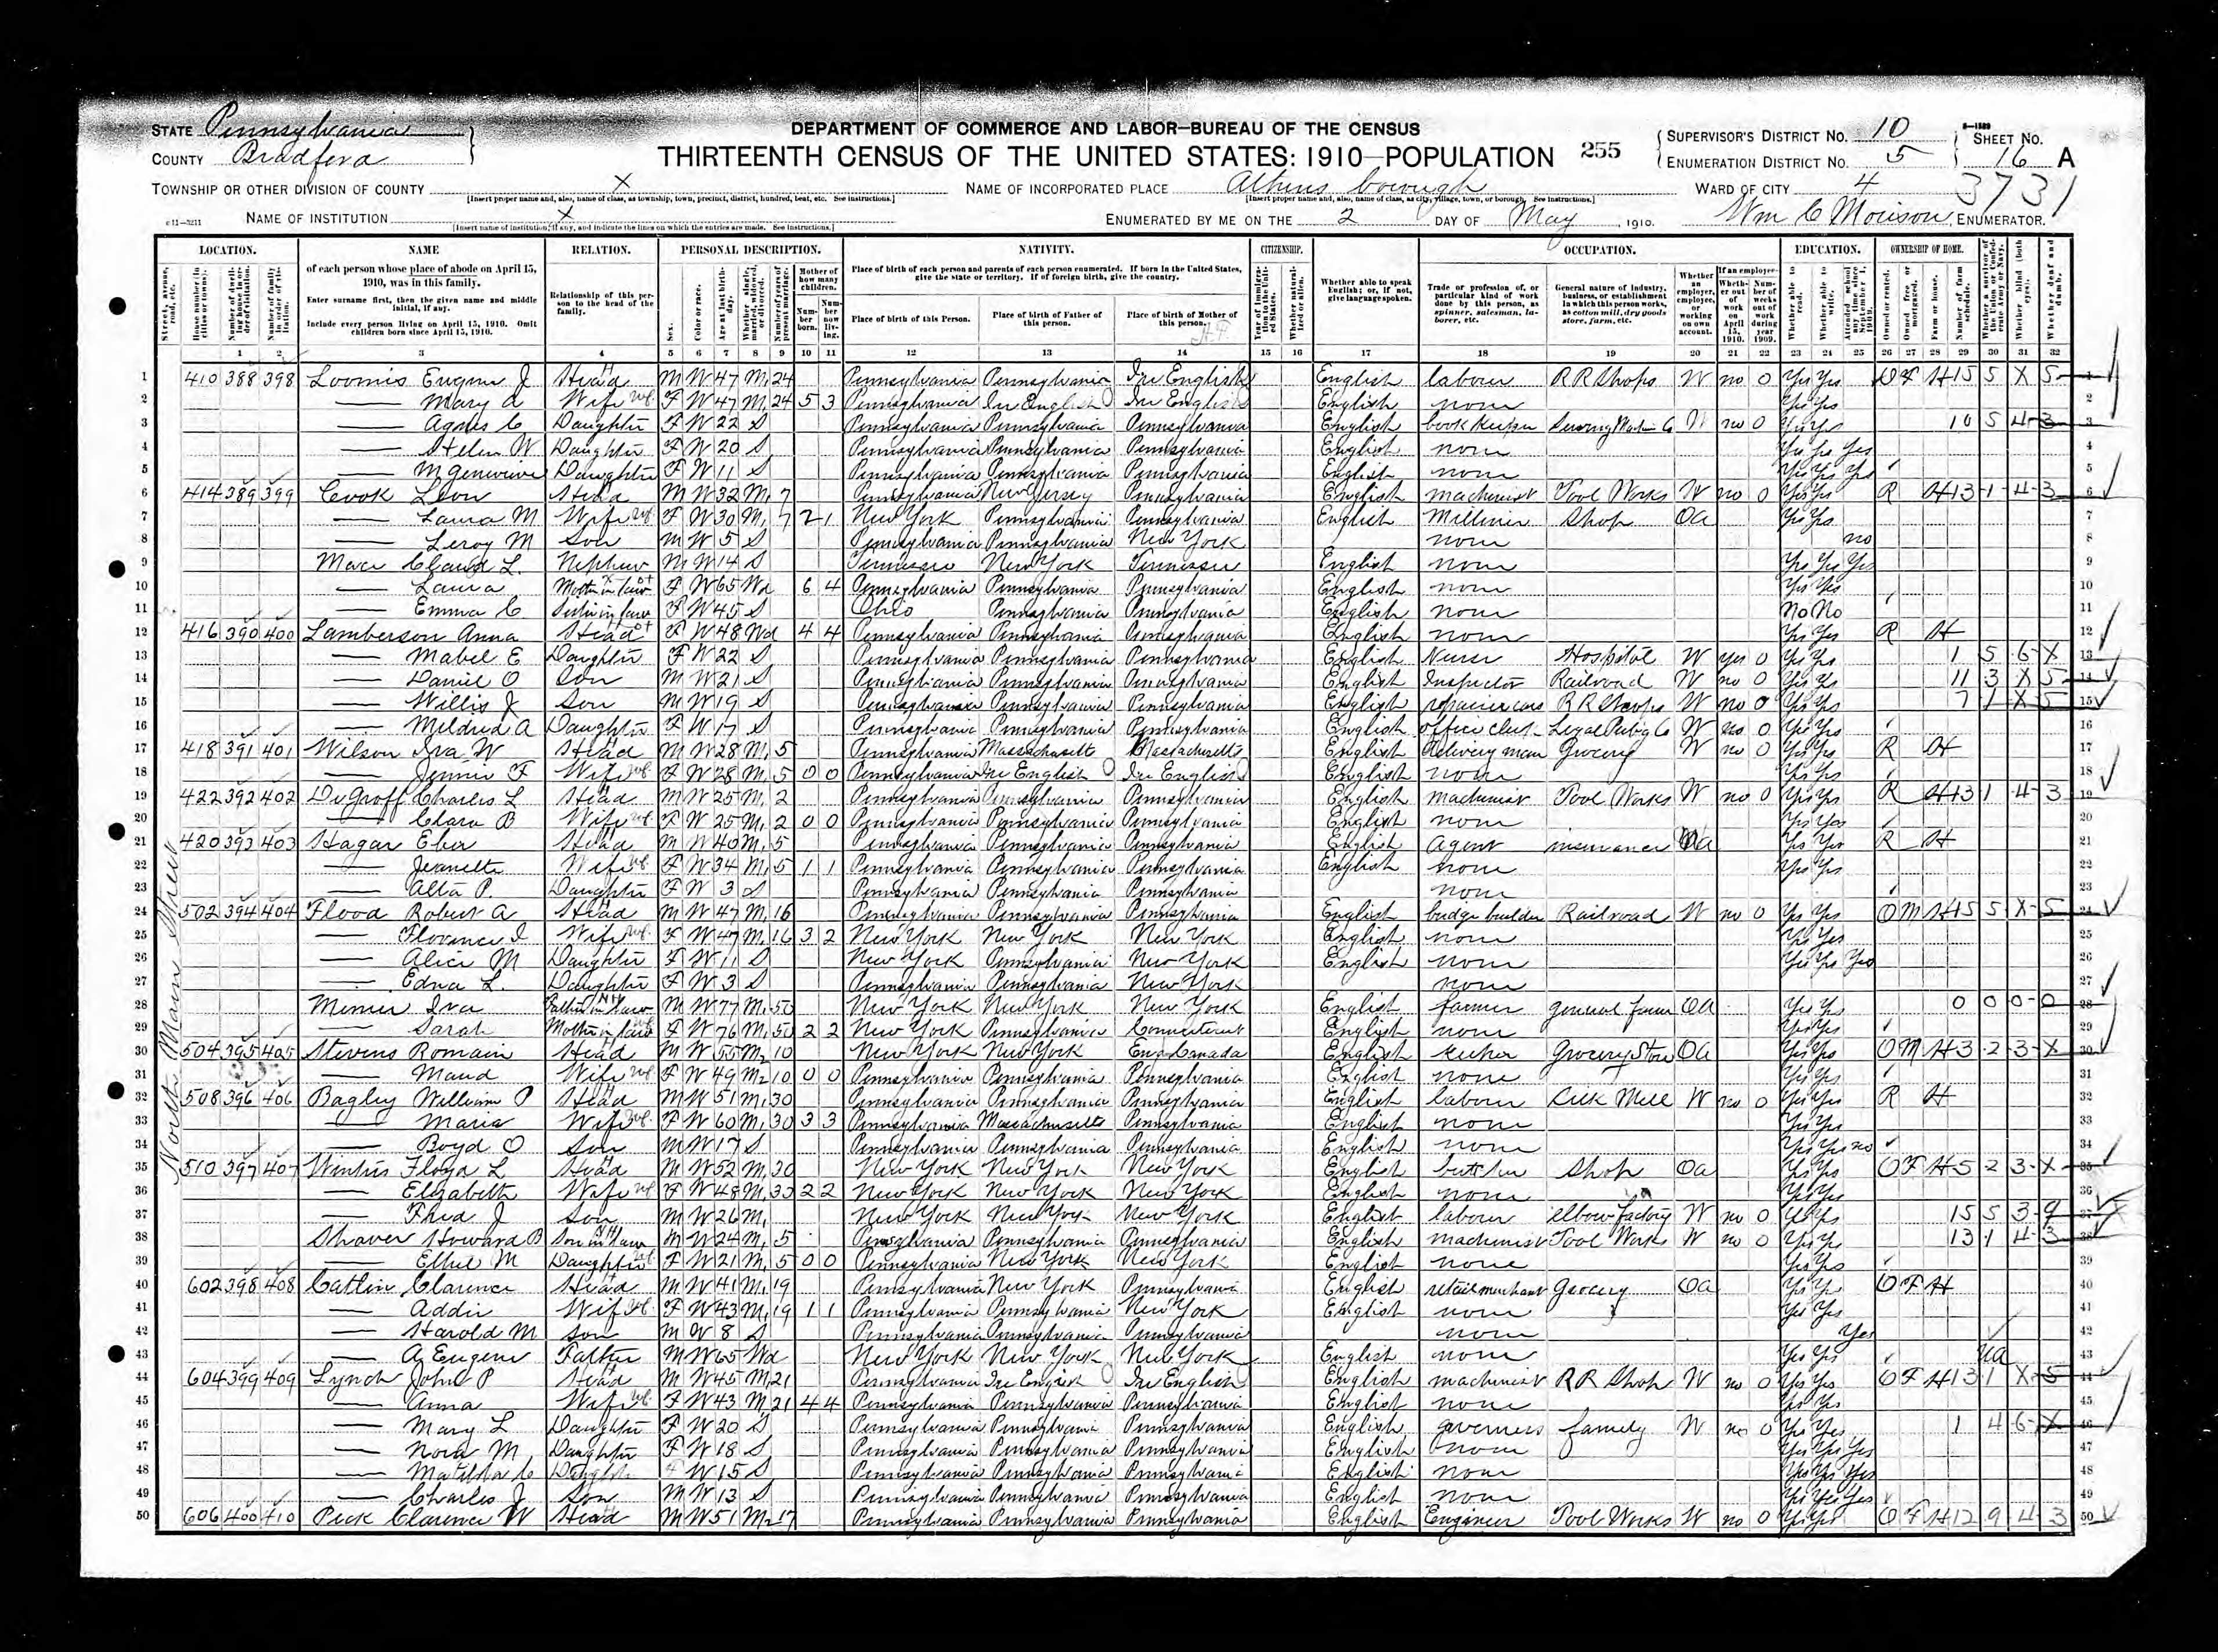 STATE Pennsylvania
COUNTY Bradford
DEPARTMENT OF COMMERCE AND LABOR—BUREAU OF THE CENSUS
THIRTEENTH CENSUS OF THE UNITED STATES: 1910—POPULATION 255
SUPERVISOR'S DISTRICT No. 10 SHEET No.
ENUMERATION DISTRICT No. 5 16 A
TOWNSHIP OR OTHER DIVISION OF COUNTY X NAME OF INCORPORATED PLACE Athens borough WARD OF CITY 4 3731
NAME OF INSTITUTION X ENUMERATED BY ME ON THE 2 DAY OF May, 1910. Wm C Morison, ENUMERATOR.
LOCATION. NAME RELATION. PERSONAL DESCRIPTION. NATIVITY. CITIZENSHIP. OCCUPATION. EDUCATION. OWNERSHIP OF HOME.
of each person whose place of abode on April 15, 1910, was in this family.
Enter surname first, then the given name and middle initial, if any.
Include every person living on April 15, 1910. Omit children born since April 15, 1910.
Relationship of this person to the head of the family.
Place of birth of each person and parents of each person enumerated. If born in the United States, give the state or territory. If of foreign birth, give the country.
Place of birth of this Person. Place of birth of Father of this person. Place of birth of Mother of this person.
Whether able to speak English; or, if not, give language spoken.
Trade or profession of, or particular kind of work done by this person, as spinner, salesman, laborer, etc.
General nature of industry, business, or establishment in which this person works, as cotton mill, dry goods store, farm, etc.
North Main Street
1 410 388 398 Loomis Eugene J Head M W 47 M1 24 Pennsylvania Pennsylvania Ire English English laborer RR Shops W no 0 Yes Yes O F H 15 5 X 5
2 — Mary A Wife F W 47 M1 24 5 3 Pennsylvania Ire English Ire English English none Yes Yes
3 — Agnes C Daughter F W 22 S Pennsylvania Pennsylvania Pennsylvania English book keeper W no 0 Yes Yes 10 5 4 3
4 — Helen W Daughter F W 20 S Pennsylvania Pennsylvania Pennsylvania English none Yes Yes Yes
5 — M Genevieve Daughter F W 11 S Pennsylvania Pennsylvania Pennsylvania English none Yes Yes Yes
6 414 389 399 Cook Leon Head M W 32 M1 7 Pennsylvania New Jersey Pennsylvania English machinist Tool Works W no 0 Yes Yes R H 13 1 4 3
7 — Laura M Wife F W 30 M1 7 2 1 New York Pennsylvania Pennsylvania English Milliner Shop OA Yes Yes
8 — Leroy M Son M W 5 S Pennsylvania Pennsylvania New York none no
9 Claud L. Nephew M W 14 S Tennessee New York Tennessee English none Yes Yes Yes
10 — Laura Mother in law F W 65 Wd 6 4 Pennsylvania Pennsylvania Pennsylvania English none Yes Yes
11 — Emma C Sister in law F W 45 S Ohio Pennsylvania Pennsylvania English none No No
12 416 390 400 Lamberson Anna Head F W 48 Wd 4 4 Pennsylvania Pennsylvania Pennsylvania English none Yes Yes R H
13 — Mabel E Daughter F W 22 S Pennsylvania Pennsylvania Pennsylvania English Nurse Hospital W yes 0 Yes Yes 1 5 6 X
14 — Daniel O Son M W 21 S Pennsylvania Pennsylvania Pennsylvania English Inspector Railroad W no 0 Yes Yes 11 3 X 5
15 — Willis J Son M W 19 S Pennsylvania Pennsylvania Pennsylvania English repairer cars RR Shops W no 0 Yes Yes 7 1 X 5
16 — Mildred A Daughter F W 17 S Pennsylvania Pennsylvania Pennsylvania English office clerk W no 0 Yes Yes
17 418 391 401 Wilson Ira W Head M W 28 M1 5 Pennsylvania Massachusetts Massachusetts English delivery man Grocery W no 0 Yes Yes R H
18 — Jennie F Wife F W 28 M1 5 0 0 Pennsylvania Ire English Ire English English none Yes Yes
19 422 392 402 DeGroff Charles L Head M W 25 M1 2 Pennsylvania Pennsylvania Pennsylvania English machinist Tool Works W no 0 Yes Yes R H 13 1 4 3
20 — Clara B Wife F W 25 M1 2 0 0 Pennsylvania Pennsylvania Pennsylvania English none Yes Yes
21 420 393 403 Hagar Eber Head M W 40 M1 5 Pennsylvania Pennsylvania Pennsylvania English Agent insurance OA Yes Yes R H
22 — Jeanette Wife F W 34 M1 5 1 1 Pennsylvania Pennsylvania Pennsylvania English none Yes Yes
23 — Alta P. Daughter F W 3 S Pennsylvania Pennsylvania Pennsylvania none
24 502 394 404 Flood Robert A Head M W 47 M1 16 Pennsylvania Pennsylvania Pennsylvania English bridge builder Railroad W no 0 Yes Yes O M H 15 5 X 5
25 — Florence I Wife F W 47 M1 16 3 2 New York New York New York English none Yes Yes
26 — Alice M Daughter F W 11 S New York Pennsylvania New York English none Yes Yes Yes
27 — Edna L. Daughter F W 3 S Pennsylvania Pennsylvania New York none
28 Ira Father in law M W 77 M1 50 New York New York New York English farmer general farm OA Yes Yes 0 0 0 0
29 — Sarah Mother in law F W 76 M1 50 2 2 New York Pennsylvania Connecticut English none Yes Yes
30 504 395 405 Stevens Romain Head M W 55 M2 10 New York New York Eng Canada English keeper Grocery Store OA Yes Yes O M H 3 2 3 X
31 — Maud Wife F W 49 M2 10 0 0 Pennsylvania Pennsylvania Pennsylvania English none Yes Yes
32 508 396 406 Bagley William P Head M W 51 M1 30 Pennsylvania Pennsylvania Pennsylvania English laborer Silk Mill W no 0 Yes Yes R H
33 — Maria Wife F W 60 M1 30 3 3 Pennsylvania Massachusetts Pennsylvania English none Yes Yes
34 — Boyd O Son M W 17 S Pennsylvania Pennsylvania Pennsylvania English none Yes Yes no
35 510 397 407 Winters Floyd L Head M W 52 M1 30 New York New York New York English butcher Shop OA Yes Yes O F H 5 2 3 X
36 — Elizabeth Wife F W 48 M1 30 2 2 New York New York New York English none Yes Yes
37 — Fred J Son M W 26 M1 New York New York New York English laborer elbow factory W no 0 Yes Yes 15 5 3 9
38 Shaver Howard B Son in law M W 24 M1 5 Pennsylvania Pennsylvania Pennsylvania English machinist Tool Works W no 0 Yes Yes 13 1 4 3
39 — Ethel M Daughter F W 21 M1 5 0 0 Pennsylvania New York New York English none Yes Yes
40 602 398 408 Catlin Clarence Head M W 41 M1 19 Pennsylvania New York Pennsylvania English retail merchant Grocery OA Yes Yes O F H
41 — Addie Wife F W 43 M1 19 1 1 Pennsylvania Pennsylvania New York English none Yes Yes
42 — Harold M Son M W 8 S Pennsylvania Pennsylvania Pennsylvania none Yes
43 — A Eugene Father M W 65 Wd New York New York New York English none Yes Yes UA
44 604 399 409 Lynch John P Head M W 45 M 21 Pennsylvania Ire English Ire English English machinist RR Shop W no 0 Yes Yes O F H 13 1 X 5
45 — Anna Wife F W 43 M 21 4 4 Pennsylvania Pennsylvania Pennsylvania English none Yes Yes
46 — Mary L Daughter F W 20 S Pennsylvania Pennsylvania Pennsylvania English governess family W no 0 Yes Yes 1 4 6 X
47 — Nora M Daughter F W 18 S Pennsylvania Pennsylvania Pennsylvania English none Yes Yes Yes
48 — Matilda C Daughter F W 15 S Pennsylvania Pennsylvania Pennsylvania English none Yes Yes Yes
49 — Charles J Son M W 13 S Pennsylvania Pennsylvania Pennsylvania English none Yes Yes Yes
50 606 400 410 Peck Clarence W Head M W 51 M2 17 Pennsylvania Pennsylvania Pennsylvania English Engineer Tool Works W no 0 Yes Yes O F H 12 9 4 3